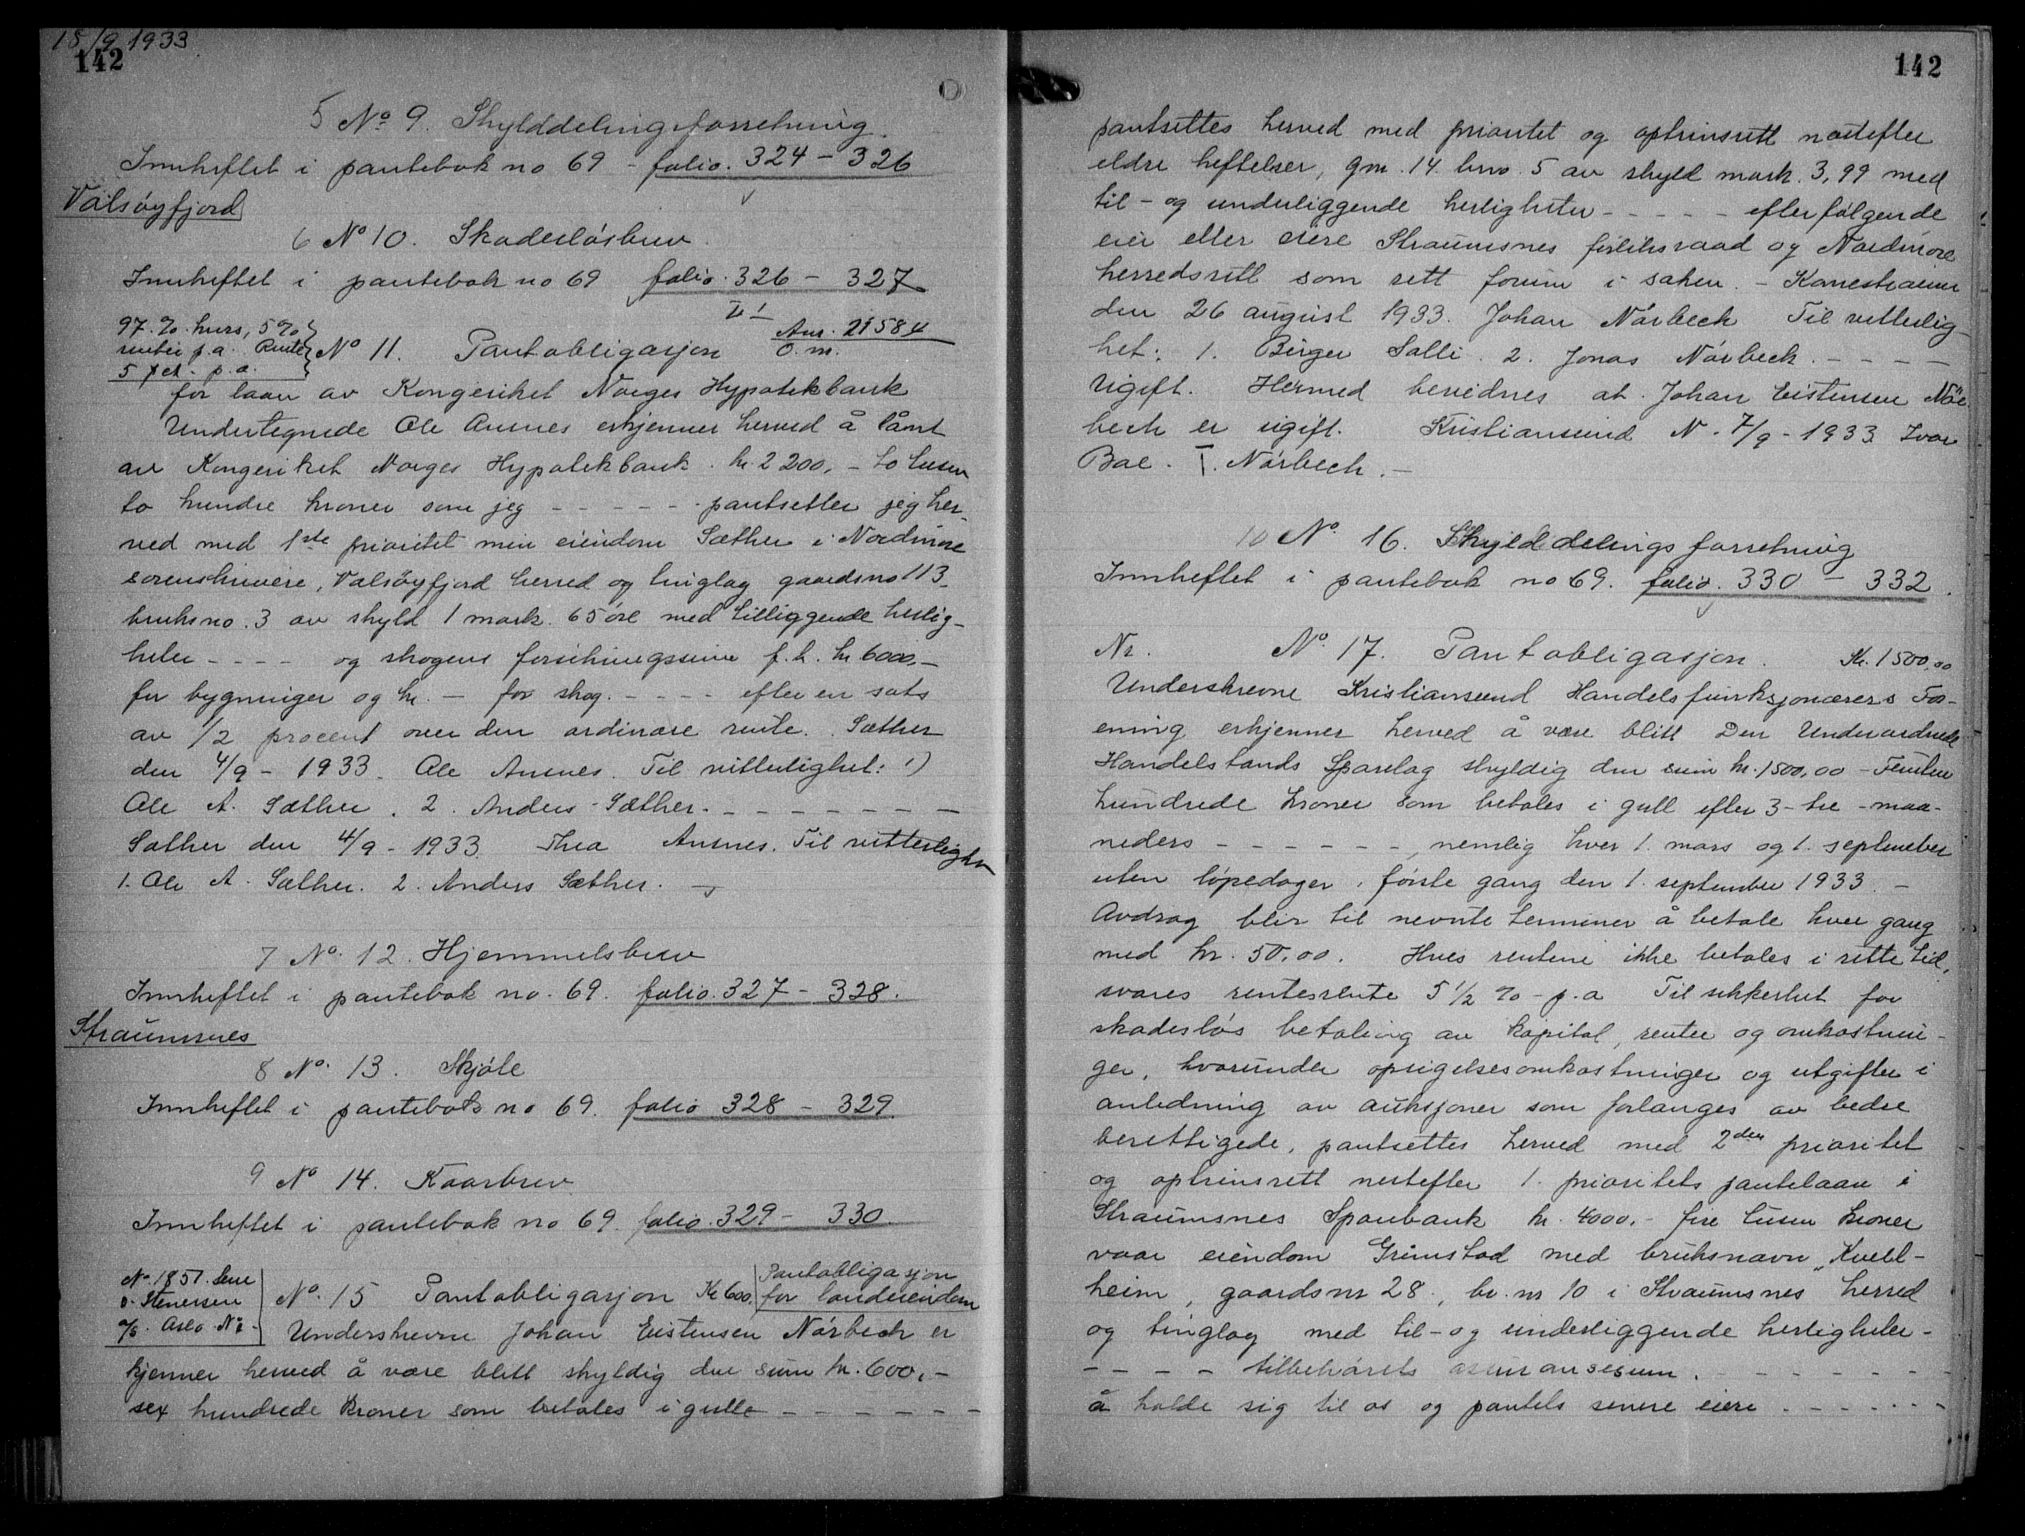 15/9 1933
142
5 No 9. Skylddelingsforretning.
Innheftet i pantebok no 69 - folio. 324 - 326
Valsøyfjord
6 No 10. Skadesløsbrev.
Innheftet i pantebok no 69 folio. 326 - 327
97 % kurs, 5 %
renter p.a. Rente
5 pct. p.a.
No 11. Pantobligasjon Ans. 21584
O. m.
for laan av Kongeriket Norges Hypotekbank
Undertegnede Ole Ansnes erkjenner herved å lånt
av Kongeriket Norges Hypotekbank. kr. 2 200, - to tusen
to hundre kroner som jeg - - - - - pantsetter jeg her-
ved med 1ste prioritet min eiendom Sæther i Nordmøre
sorenskriveri, Valsøyfjord herred og tinglag gaardsno 113
bruksno. 3 av skyld 1 mark. 65 øre med tilliggende herlig-
heter - - - - og skogens forsikringssum f.t. kr. 6000,-
for bygninger og kr. - for skog. - - - - efter en sats
av 1/2 procent over den ordinære rente. Sæther
den 4/9 - 1933. Ole Ansnes. Til vitterlighet: 1)
Ole A. Sæther. 2. Anders Sæther. - - - - - - -
Sæther den 4/9 - 1933. Thea Ansnes. Til vitterlighet
1. Ole A. Sæther. 2. Anders Sæther. -
7 No. 12. Hjemmelsbrev
Innheftet i pantebok no. 69. folio. 327 - 328.
Straumsnes
8 No. 13. Skjøte
Innheftet i pantebok no 69. folio 328 - 329.
9 No 14. Kaarbrev
Innheftet i pantebok no 69. folio. 329 - 330.
No. 1851. Sem
o. Stenersen
A/S. Oslo No -
No. 15 Pantobligasjon Kr 600. Pantobligasjon
for landeiendom
Underskrevne Johan Eistensen Nørbech er
kjenner herved å være blitt skyldig den sum kr. 600,-
sex hundrede kroner som betales i gull - - - - - -
142
pantsettes herved med prioritet og optrinsrett nestefter
eldre heftelser, gnr. 14. brno. 5 av skyld mark. 3,99 med
til - og underliggende herligheter - - - - - efterfølgende
eier eller eiere Straumsnes forliksraad og Nordmøre
herredsrett som rett forum i saken. - Kanestraum
den 26 august 1933. Johan Nørbech Til vitterlig-
het: 1. Birger Salli. 2. Jonas Nørbech. - - - -
Ugift. Hermed bevidnes at Johan Eistensen Nør-
bech er ugift. Kristiansund N. 7/9 - 1933 Ivar
Bae. I. Nørbech. -
10 No. 16. Skylddelingsforretning
Innheftet i pantebok no 69. folio. 330 - 332.
Nr. No. 17. Pantobligasjon. Kr. 1500,00
Underskrevne Kristiansund Handelsfunksjonærers For-
ening erkjenner herved å være blitt Den Underordnede
Handelstands Sparelag skyldig den sum kr. 1500,00 - Femten
hundrede kroner som betales i gull efter 3 - tre - maa-
neders - - - - - -, nemlig hver 1. mars og 1. september
uten løpedager, første gang den 1. september 1933. -
Avdrag blir til nevnte terminer å betale hver gang
med kr. 50,00. Hvis rentene ikke betales i rette tid,
svares rentesrente 5 1/2 % - p.a Til sikkerhet for
skadesløs betaling av kapital, renter og omkostnin-
ger, hvorunder opsigelsesomkostninger og utgifter i
anledning av auksjoner som forlanges av bedre
berettigede, pantsettes herved med 2den prioritet
og optrinsrett nestefter 1. prioritets pantelaan i
Straumsnes Sparebank kr. 4000.- fire tusen kroner
vaar eiendom Grimstad med bruksnavn „Kveld-
heim, gaardsnr 28, br. nr 10 i Straumsnes herred
og tinglag med til - og underliggende herligheter -
- - - - tilbehørets assuransesum. - - - - - -
å holde sig til os og pantets senere eiere - - - - - -